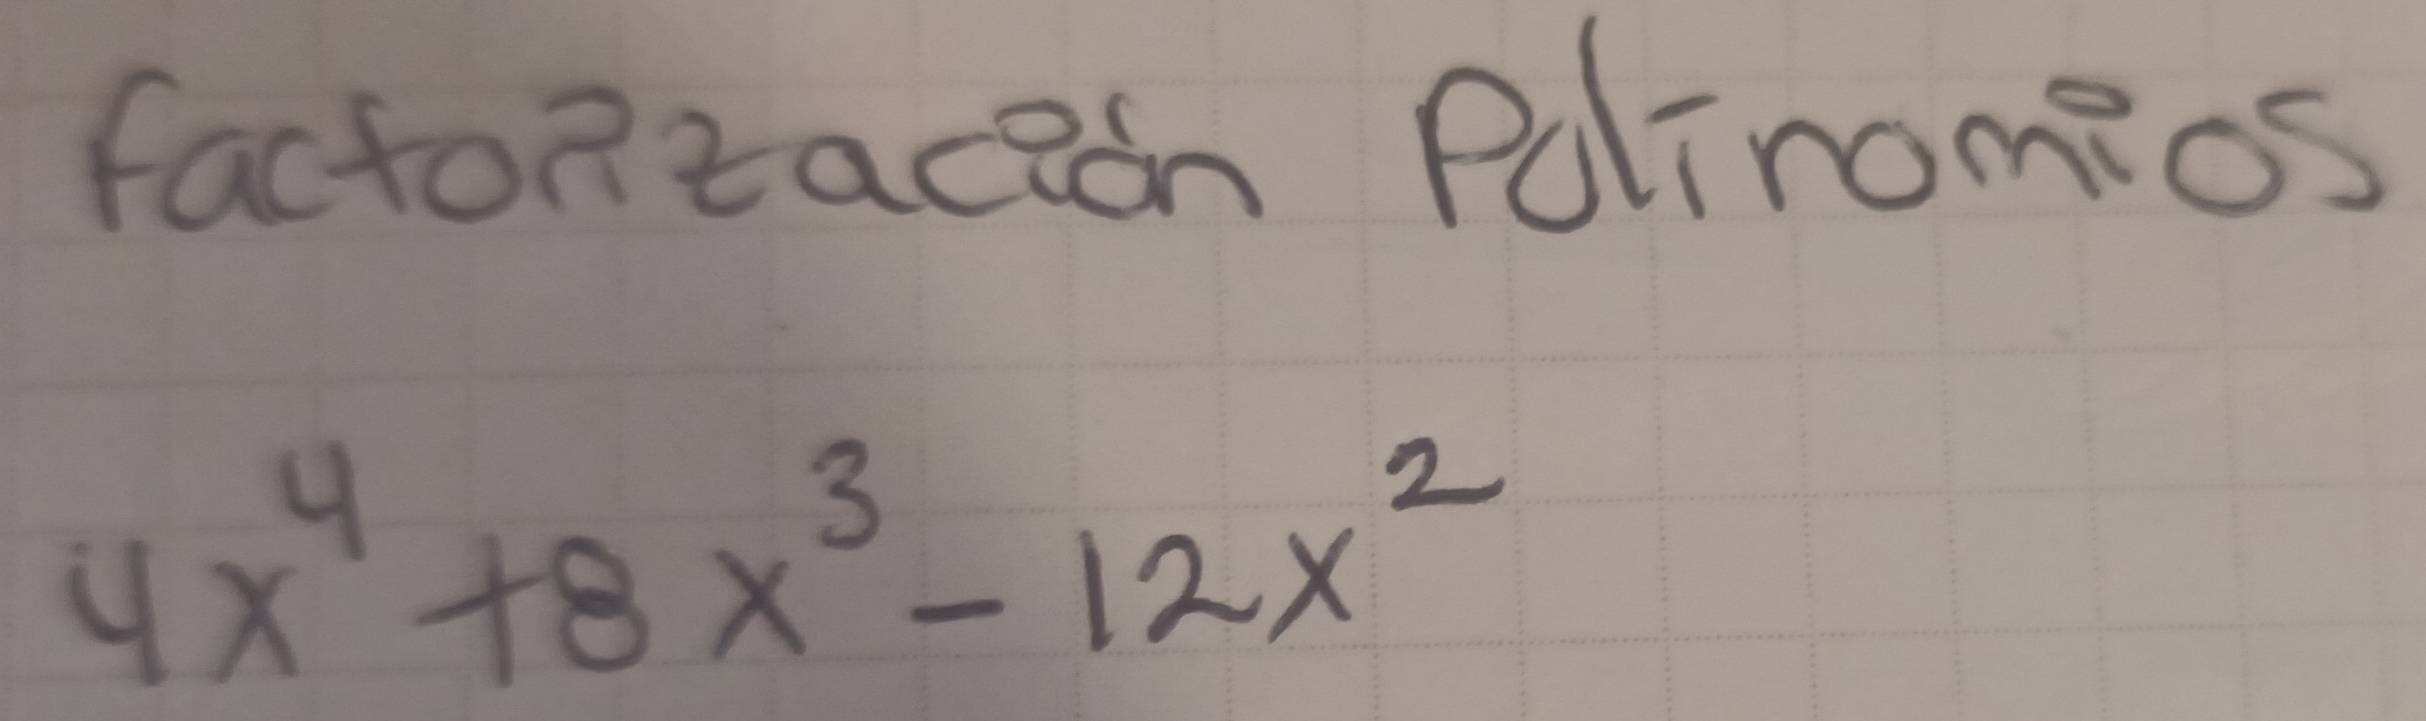 factorización Polinomios
4x⁴ + 8x³ - 12x²